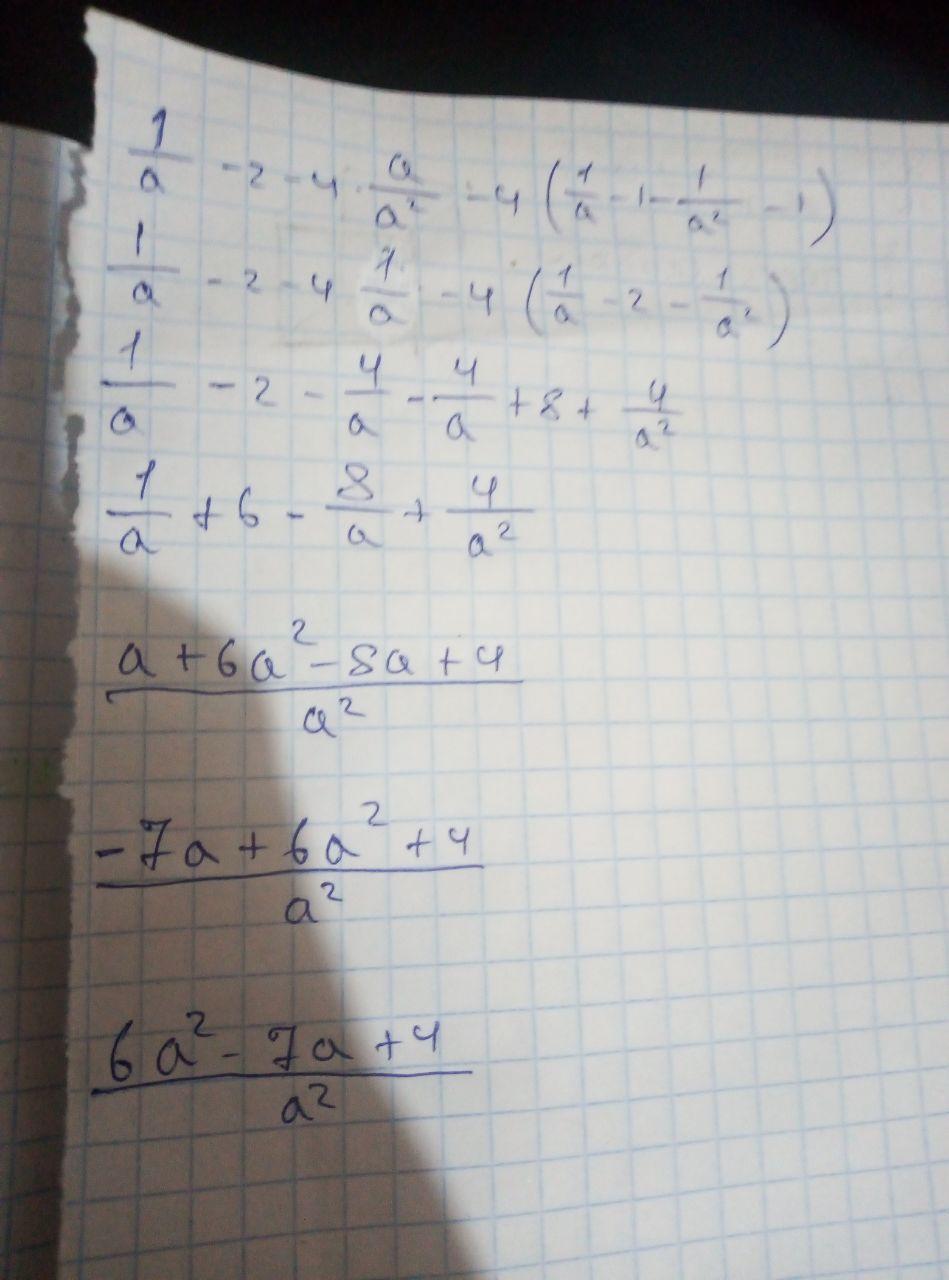 1/a - 2 - 4 · a/a² - 4 (1/a - 1 - 1/a² - 1)
1/a - 2 - 4 1/a - 4 (1/a - 2 - 1/a²)
1/a - 2 - 4/a - 4/a + 8 + 4/a²
1/a + 6 - 8/a + 4/a²
a + 6a² - 8a + 4
a²
-7a + 6a² + 4
a²
6a² - 7a + 4
a²